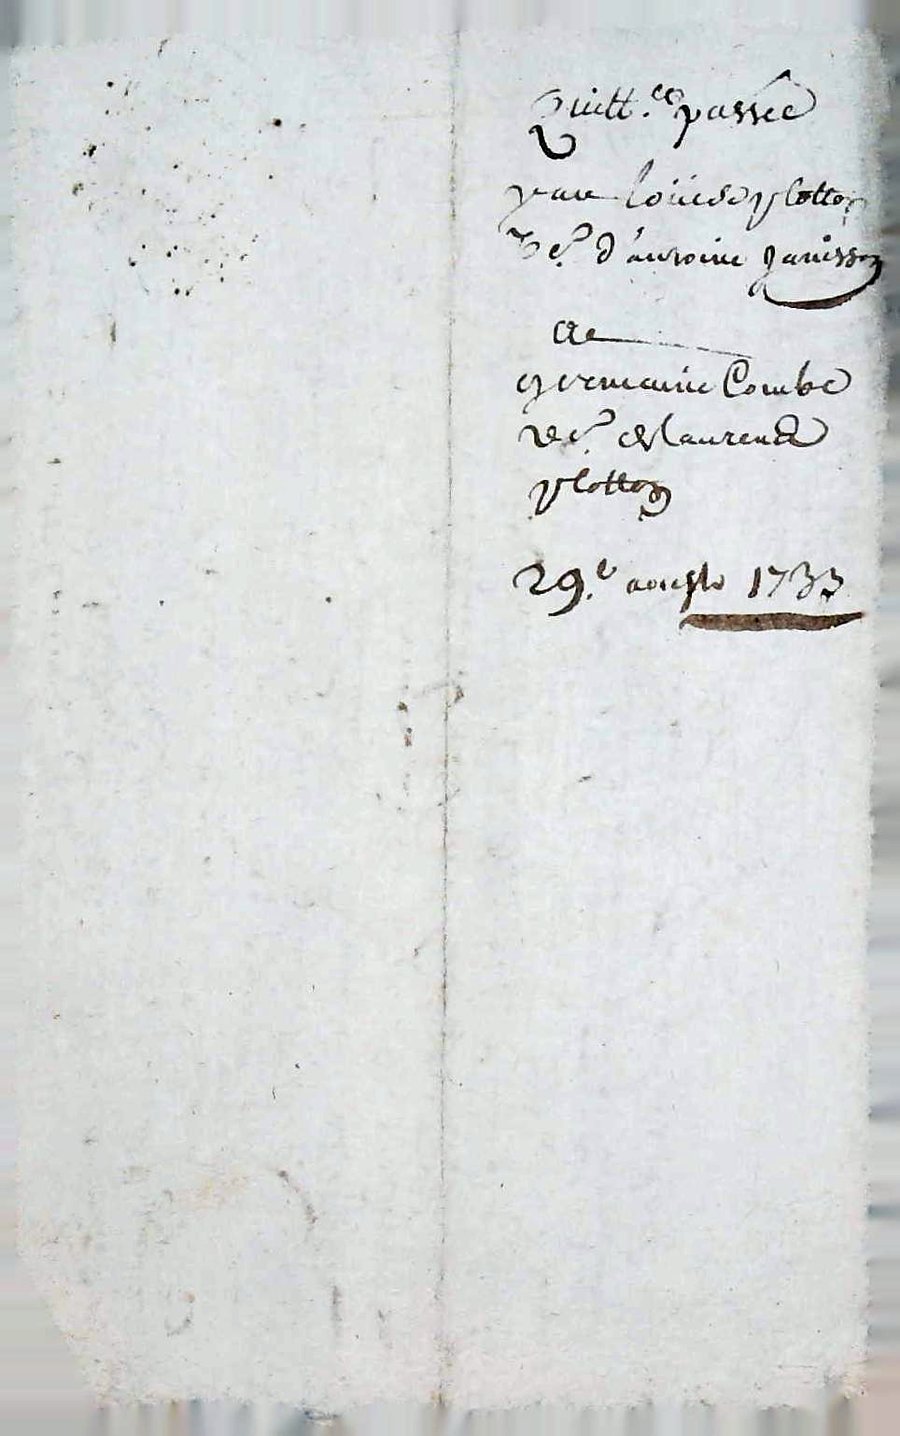 Quitt.ce passée
par loüise plotton
Ve. d'antoine Janisson
A
germaine Combe
ve. de laurend
plotton
29.e aoust 1733